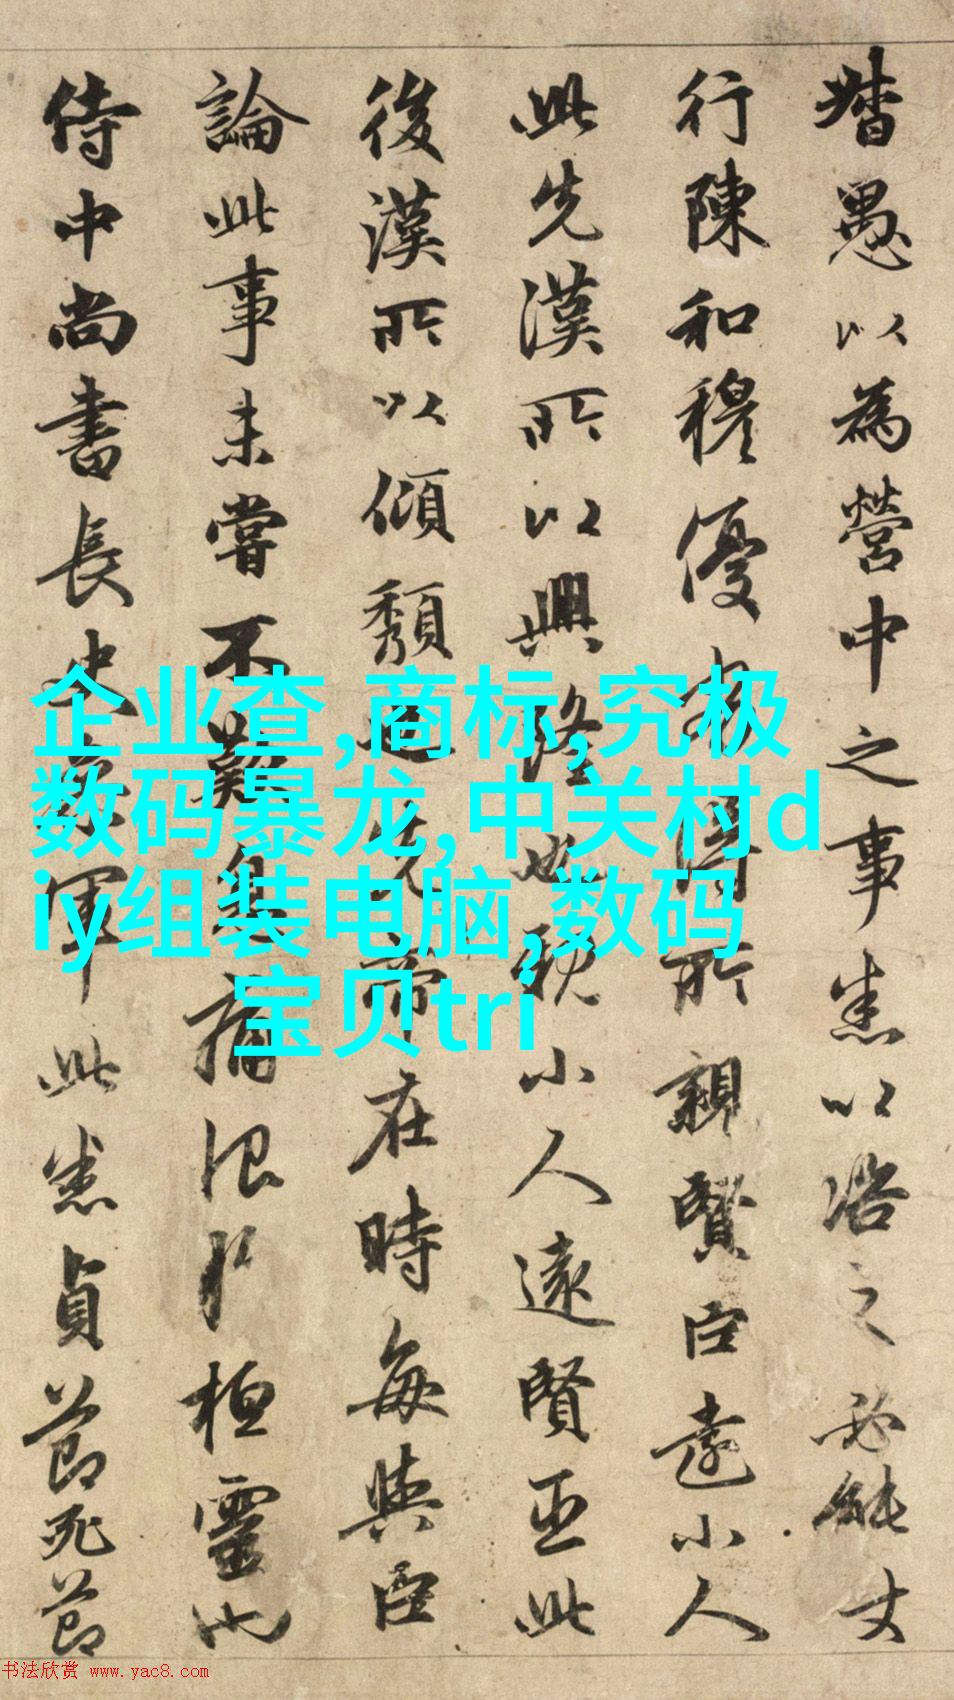 督愚以為營中之事悉以咨之必能丈
行陳和穆優劣得所親賢臣遠小人
此先漢所以興隆也親小人遠賢臣此
後漢所以傾頹也先帝在時每與臣
論此事未嘗不歎息痛恨於桓靈也
侍中尚書長史參軍此悉貞節死節
企业查,商标,究极
数码暴龙,中关村d
iy组装电脑,数码
宝贝tri
书法欣赏 www.yac8.com